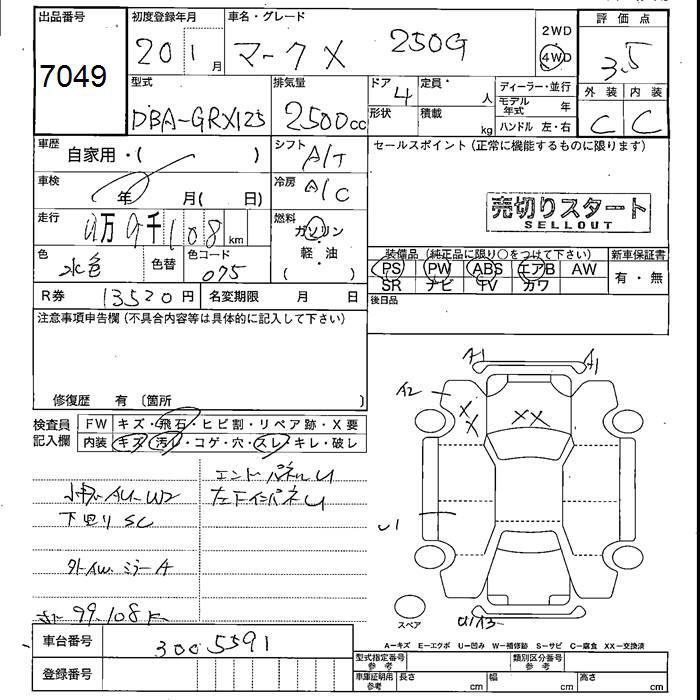 出品番号
7049
初度登録年月
20 1 月
車名・グレード
マークX 250G
2WD
4WD
評価点
3.5
外装 内装
C C
型式
DBA-GRX125
排気量
2500cc
ドア 4
形状
定員 人
積載 kg
ディーラー・並行
モデル年式 年
ハンドル 左・右
車歴
自家用・( )
シフト
A/T
車検
年 月( 日)
冷房
A/C
セールスポイント(正常に機能するものに限ります)
売切りスタート
SELLOUT
走行
万9千108km
燃料
ガソリン
軽・油
( )
色
水色
色替
色コード
075
装備品(純正品に限り○をつけて下さい)
PS PW ABS エアB AW
SR ナビ TV カワ
新車保証書
有・無
R券 13520円
名変期限 月 日
後日品
注意事項申告欄(不具合内容等は具体的に記入して下さい)
修復歴 有(箇所 )
検査員記入欄
FW キズ・飛石・ヒビ割・リペア跡・X要
内装 キズ・汚レ・コゲ・穴・スレ・キレ・破レ
エンドパネルU
AU W2
下回りSC
ミラーA
99.108K
A1 A1
A2
XX
XX
U1
スペア
A-キズ E-エクボ U-凹み W-補修跡 S-サビ C-腐食 XX-交換済
車台番号
3005591
登録番号
型式指定番号 参考
類別区分番号 参考
車庫証明用 参考
長さ cm
幅 cm
高さ cm